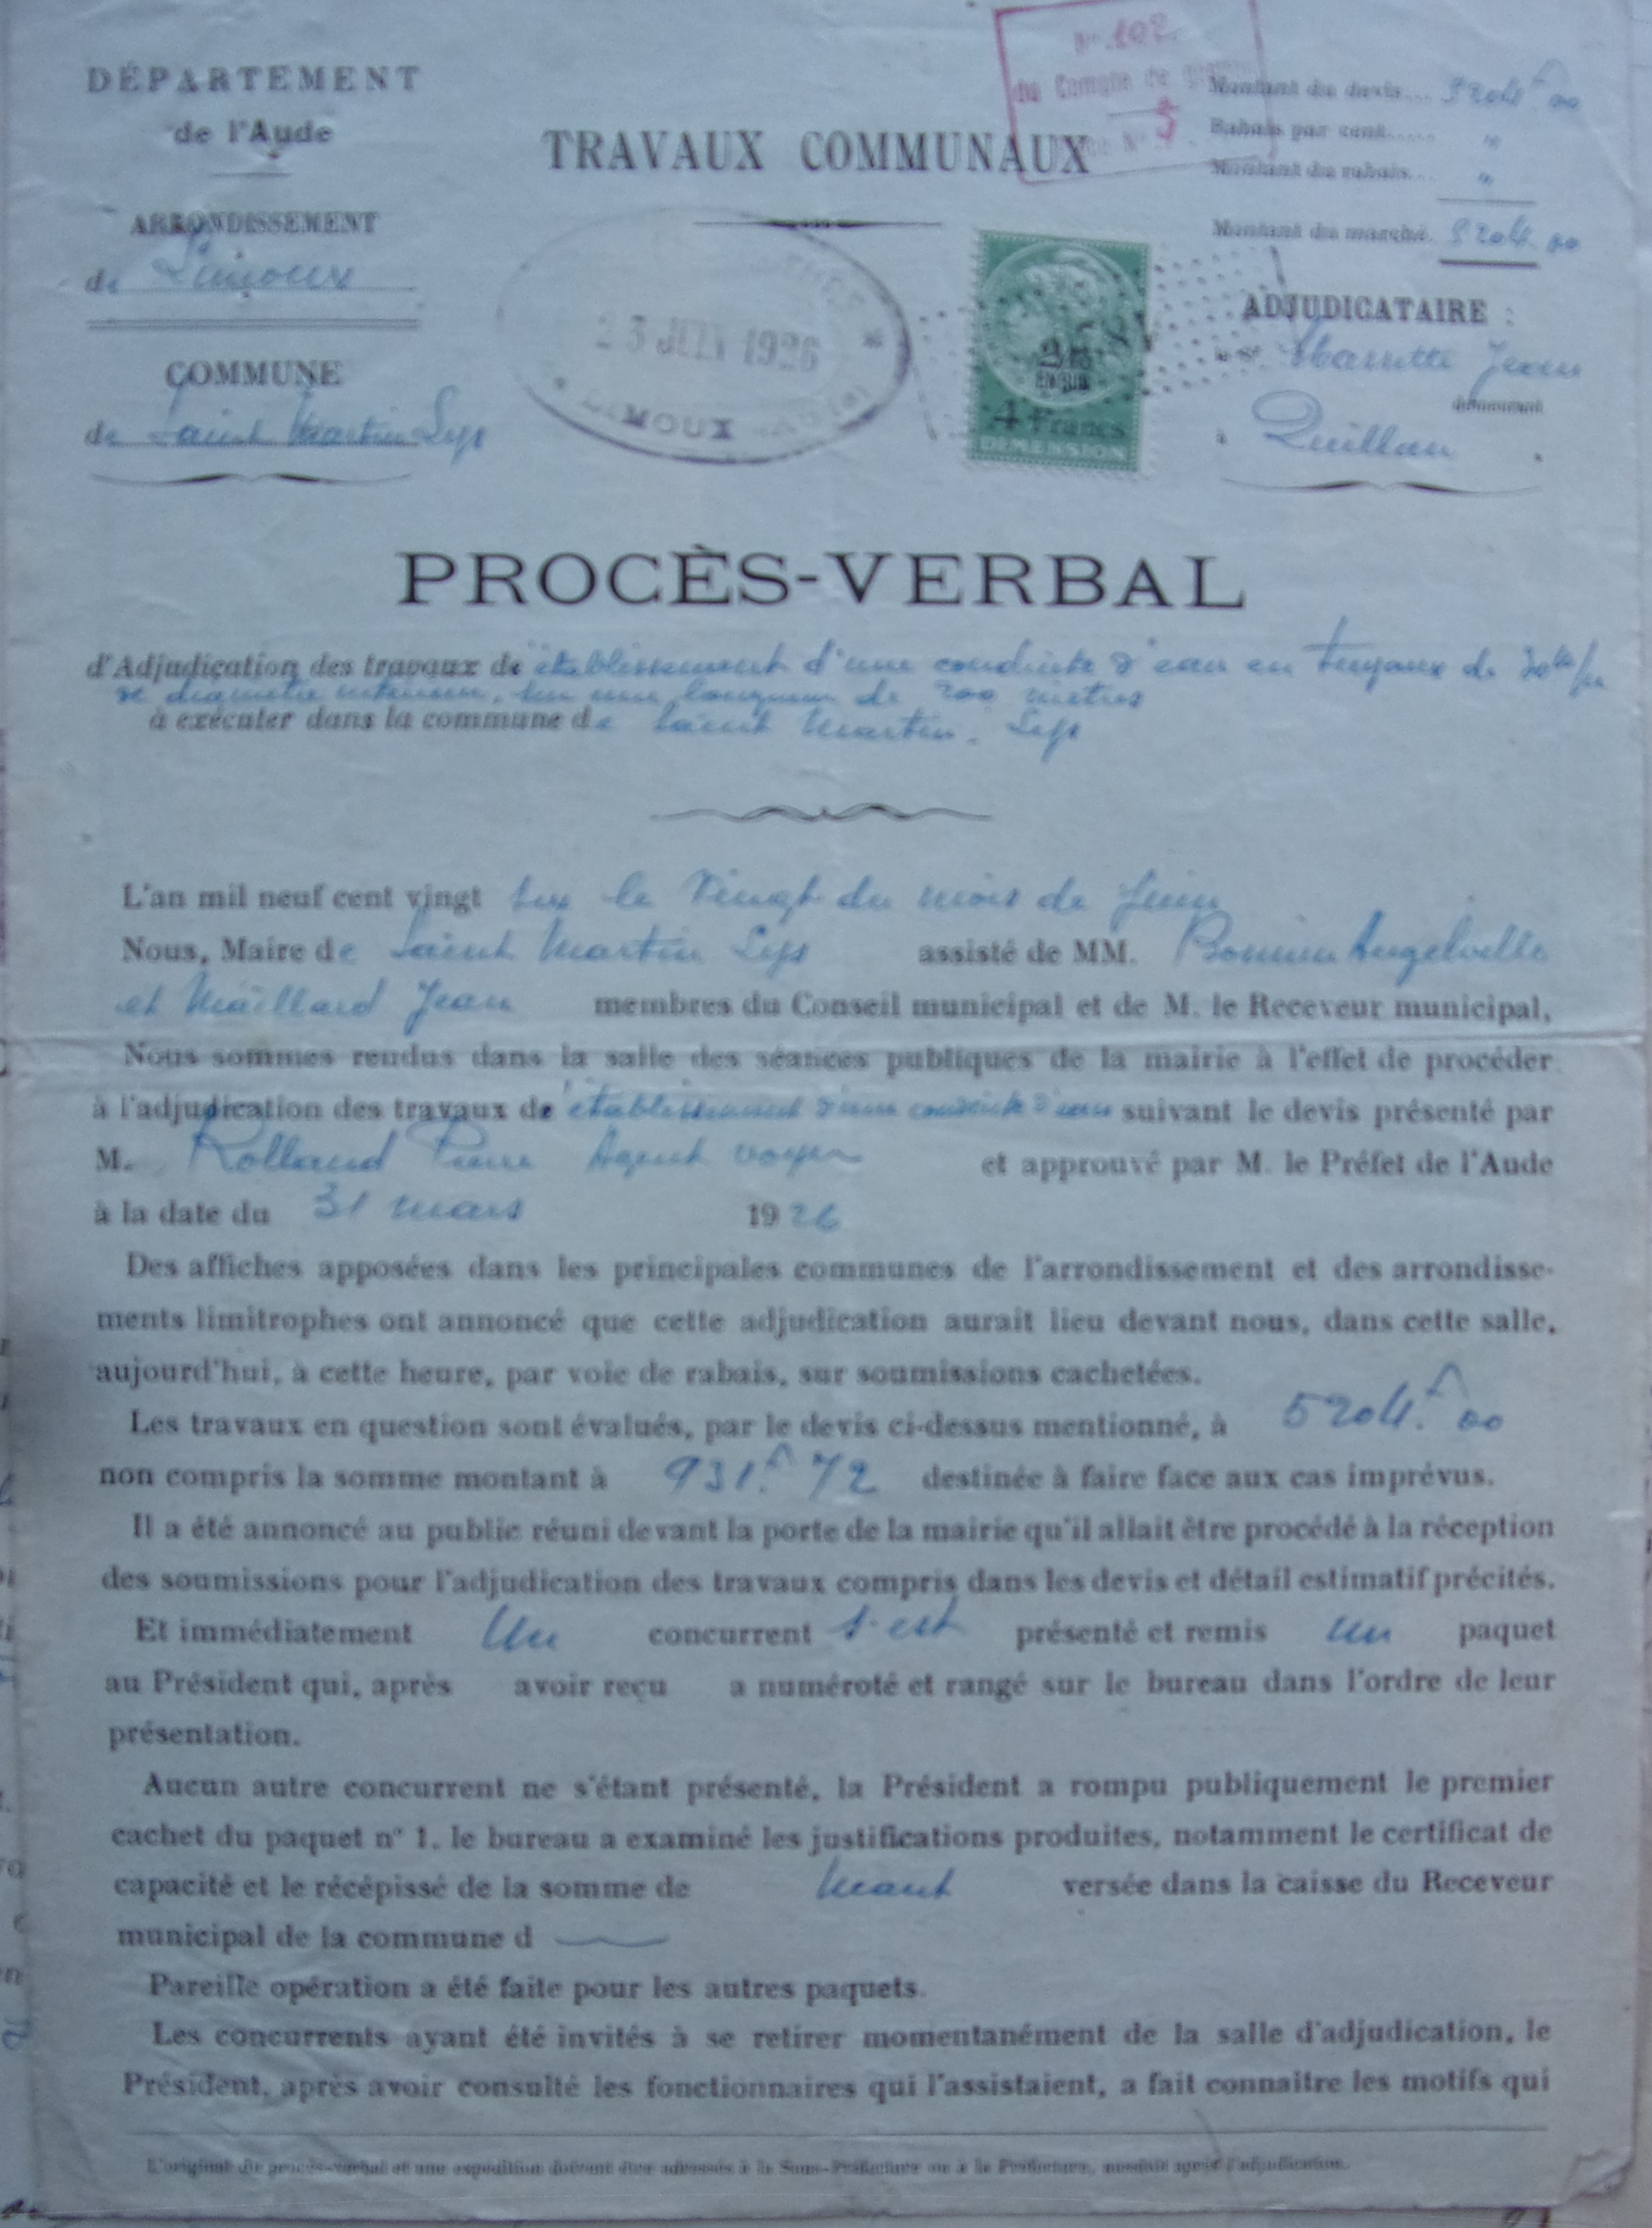 DÉPARTEMENT
de l'Aude
ARRONDISSEMENT
de Limoux
COMMUNE
de Saint Martin Lys
TRAVAUX COMMUNAUX
N° 102
du Compte de
N° 3
23 JUIN 1926
LIMOUX
4 Francs
DIMENSION
Montant du devis.... 5204f 00
Rabais par cent..... "
Montant du rabais.... "
Montant du marché. 5204. 00
ADJUDICATAIRE :
le Sr Jean
demeurant
à Quillan.
PROCÈS-VERBAL
d'Adjudication des travaux de l'établissement d'une conduite d'eau en tuyaux de
de diamètre intérieur, sur une longueur de 200 mètres
à exécuter dans la commune de Saint Martin. Lys
L'an mil neuf cent vingt six le Vingt du mois de Juin
Nous, Maire de Saint Martin Lys assisté de MM.
et Maillard Jean membres du Conseil municipal et de M. le Receveur municipal,
Nous sommes rendus dans la salle des séances publiques de la mairie à l'effet de procéder
à l'adjudication des travaux de l'établissement d'une conduite d'eau suivant le devis présenté par
M. Rolland Pierre Agent voyer et approuvé par M. le Préfet de l'Aude
à la date du 31 mars 1926
Des affiches apposées dans les principales communes de l'arrondissement et des arrondisse-
ments limitrophes ont annoncé que cette adjudication aurait lieu devant nous, dans cette salle,
aujourd'hui, à cette heure, par voie de rabais, sur soumissions cachetées.
Les travaux en question sont évalués, par le devis ci-dessus mentionné, à 5204.f 00
non compris la somme montant à 931.f 72 destinée à faire face aux cas imprévus.
Il a été annoncé au public réuni devant la porte de la mairie qu'il allait être procédé à la réception
des soumissions pour l'adjudication des travaux compris dans les devis et détail estimatif précités.
Et immédiatement Un concurrent s'est présenté et remis un paquet
au Président qui, après avoir reçu a numéroté et rangé sur le bureau dans l'ordre de leur
présentation.
Aucun autre concurrent ne s'étant présenté, la Président a rompu publiquement le premier
cachet du paquet n° 1. le bureau a examiné les justifications produites, notamment le certificat de
capacité et le récépissé de la somme de Néant versée dans la caisse du Receveur
municipal de la commune d
Pareille opération a été faite pour les autres paquets.
Les concurrents ayant été invités à se retirer momentanément de la salle d'adjudication, le
Président, après avoir consulté les fonctionnaires qui l'assistaient, a fait connaître les motifs qui
L'original du procès-verbal et une expédition doivent être adressés à la Sous-Préfecture ou à la Préfecture, aussitôt après l'adjudication.